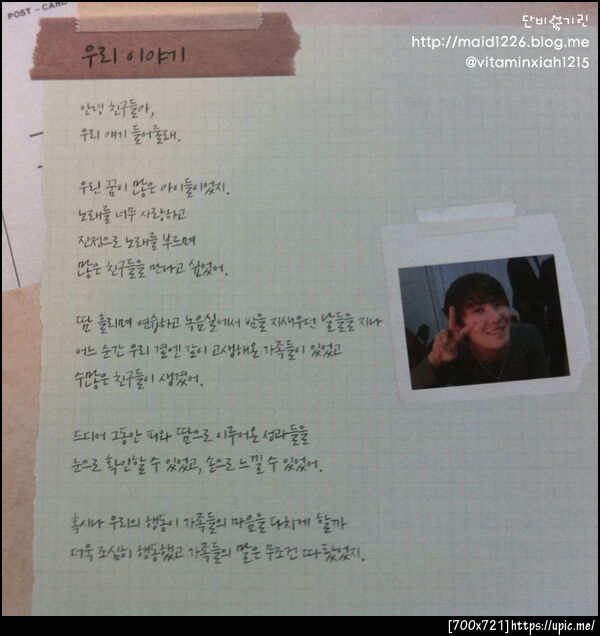 POST - CARD
단비섬기린
http://maid1226.blog.me
@vitaminxiah1215
우리 이야기
안녕 친구들아,
우리 얘기 들어줄래.
우린 꿈이 많은 아이들이었지.
노래를 너무 사랑하고
진정으로 노래를 부르며
많은 친구들을 만나고 싶었어.
땀 흘리며 연습하고 녹음실에서 밤을 지새우던 날들을 지나
어느 순간 우리 곁엔 같이 고생해온 가족들이 있었고
수많은 친구들이 생겼어.
드디어 그동안 피와 땀으로 이루어온 성과들을
눈으로 확인할 수 있었고, 손으로 느낄 수 있었어.
혹시나 우리의 행동이 가족들의 마음을 다치게 할까
더욱 조심히 행동했고 가족들의 말은 무조건 따랐었지.
[700x721]https://upic.me/